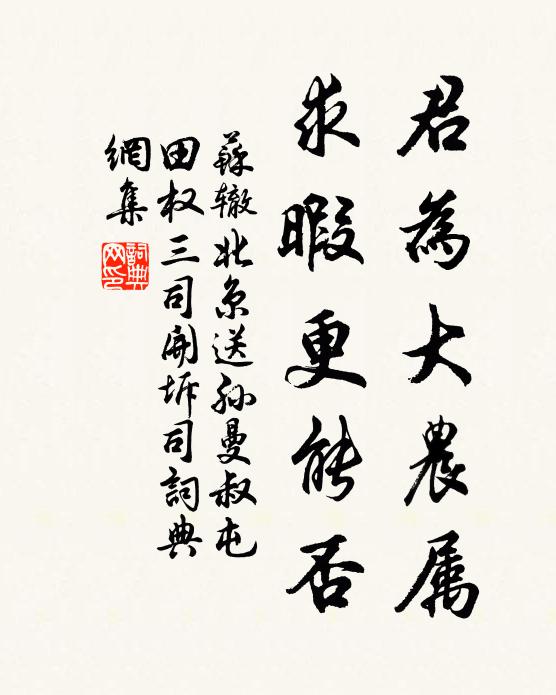 君為大農属
求暇更能否
蘇辙北京送孙曼叔屯
田权三司開坼司詞典
網集
詞典
网印